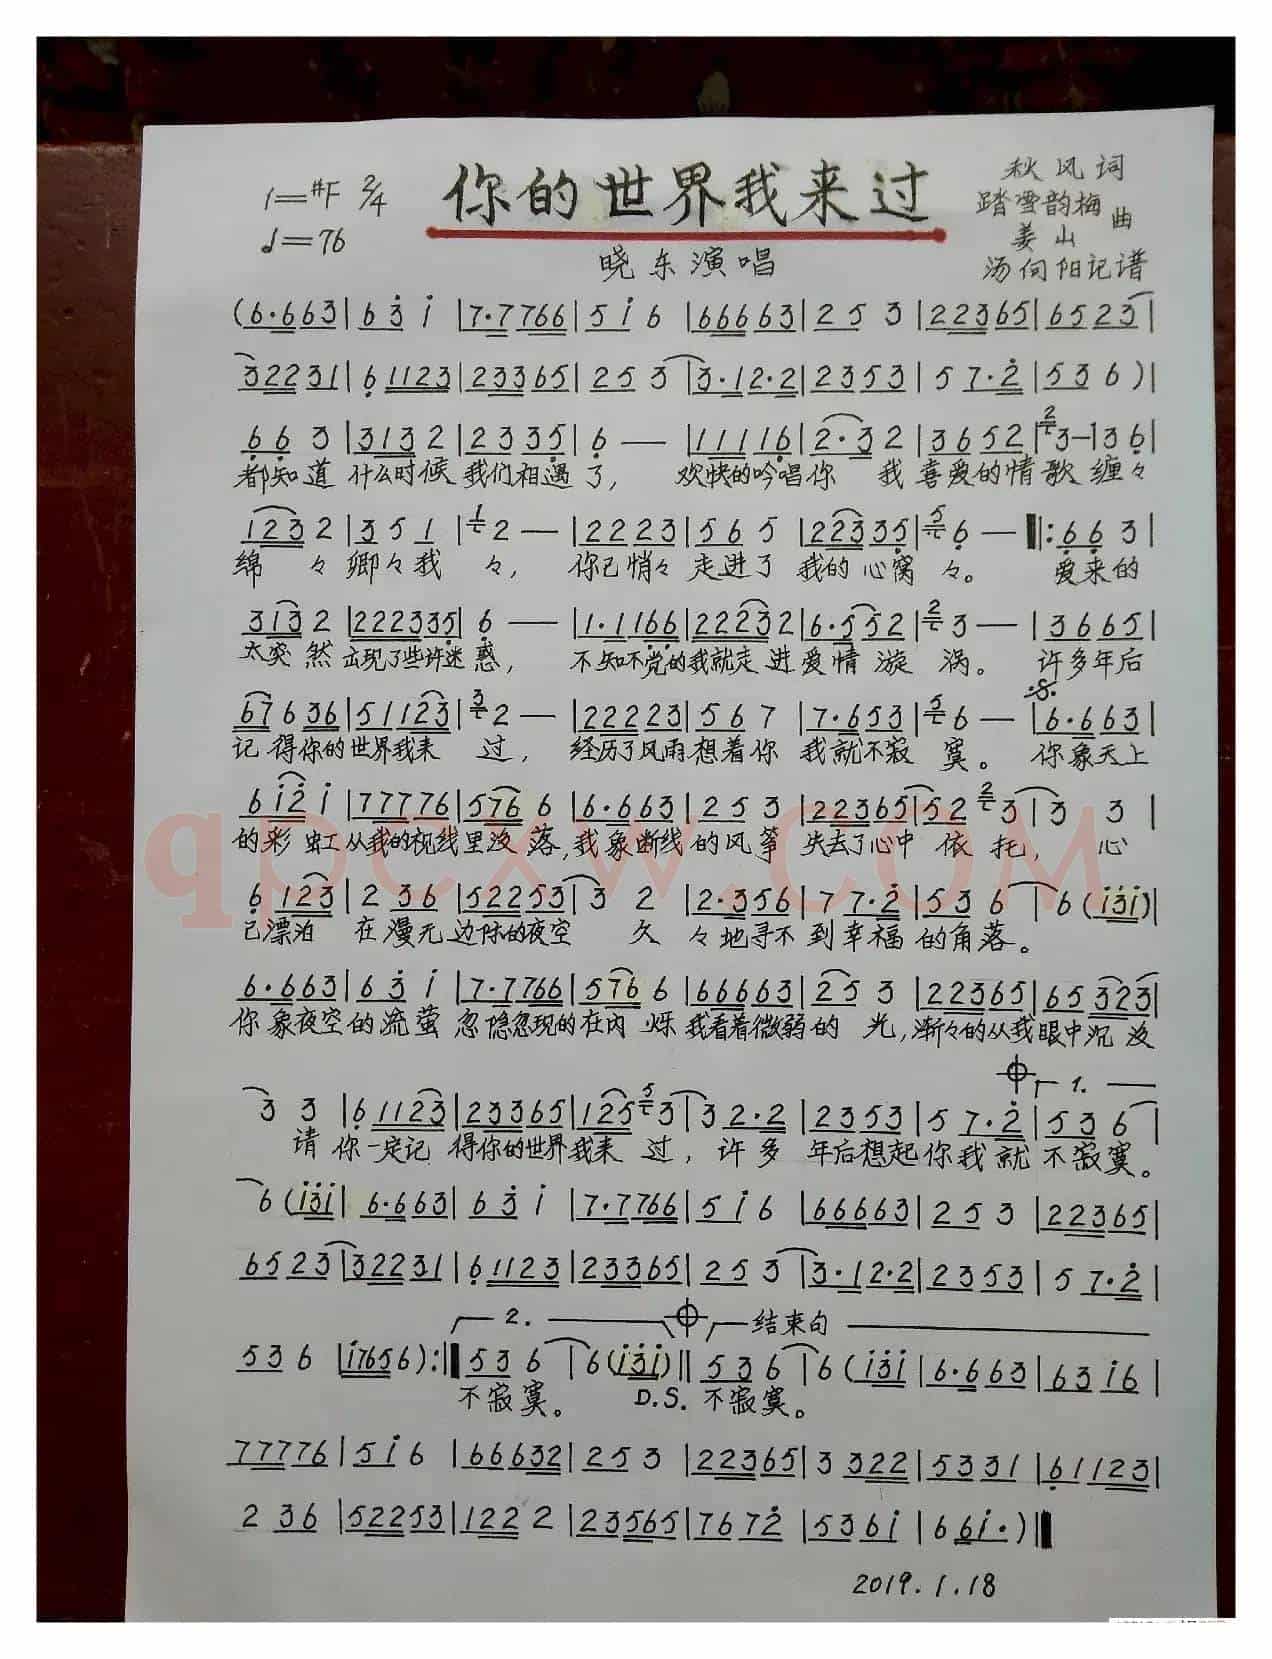 你的世界我来过
1=#F 2/4
♩=76
秋风词
踏雪韵梅 姜山 曲
汤向阳记谱
晓东演唱
(6·663|63i|7·7766|5i6|66663|253|22365|6523|
32231|61123|23365|253|3·12·2|2353|57·2|536)|
663|3132|2335|6—|11116|2·32|3652|3—|36|
都知道 什么时候 我们相遇了, 欢快的吟唱你 我喜爱的情歌 缠々
1232|351|2—|2223|565|22335|6—‖:663|
绵々 卿々我々, 你已悄々走进了我的心窝々。 爱来的
3132|222335|6—|1·1166|22232|6·552|3—|3665|
太突然 出现了些许迷惑, 不知不觉的我就走进爱情漩涡。 许多年后
67636|51123|2—|22223|567|7·653|6—|6·663|
记得你的世界我来过, 经历了风雨想着你 我就不寂寞。 你象天上
6i2i|77776|5766|6·663|253|22365|523|33|
的彩虹从我的视线里没落,我象断线的风筝 失去了心中依托, 心
6123|236|52253|32|2·356|77·2|536|6(i3i)|
已漂泊 在漫无边际的夜空 久々地寻不到幸福的角落。
6·663|63i|7·7766|5766|66663|253|22365|65323|
你象夜空的流萤 忽隐忽现的在内烁 我看着微弱的光,渐々的从我眼中沉没
1.
33|61123|23365|1253|32·2|2353|57·2|536|
请你一定记得你的世界我来过, 许多年后想起你我就不寂寞。
6(i3i|6·663|63i|7·7766|5i6|66663|253|22365|
6523|32231|61123|23365|253|3·12·2|2353|57·2|
2. 结束句
536|i7656):‖536|6(i3i)‖536|6(i3i|6·663|63i6|
不寂寞。 D.S. 不寂寞。
77776|5i6|66632|253|22365|3322|5331|61123|
236|52253|1222|23565|7672|536i|66i·)‖
2019.1.18
qpcxw.COM